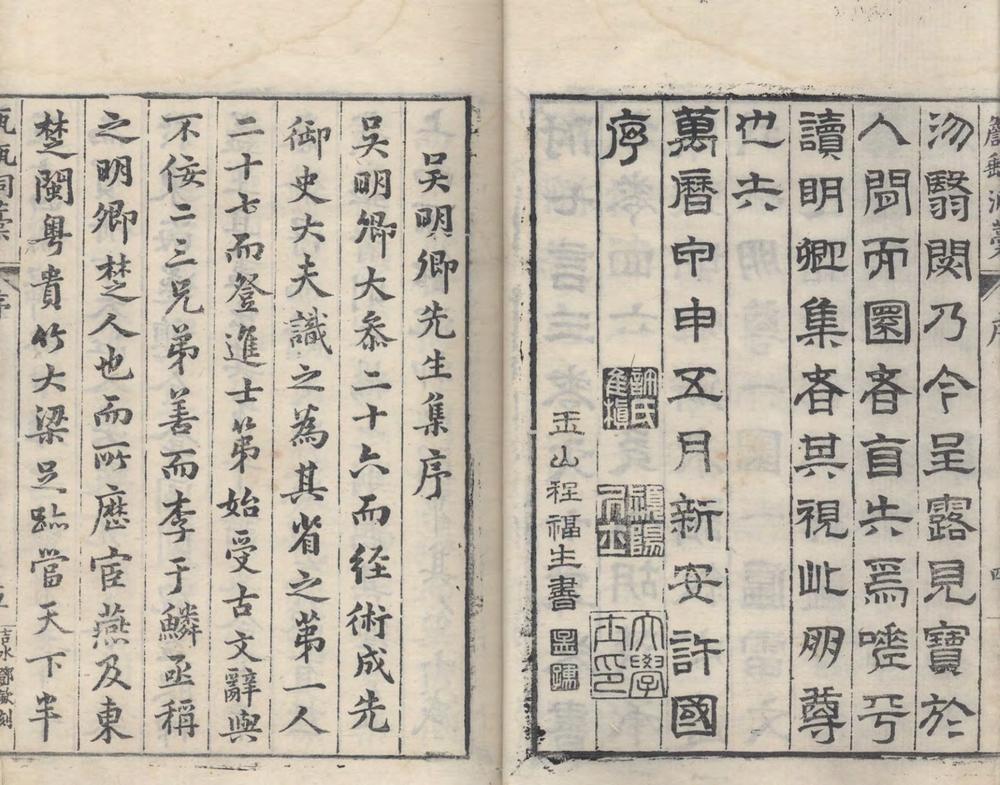 沕翳閟乃今呈露見寶於
人間而圜者盲失焉嗟乎
讀明卿集者其視此朋尊
也夫
萬曆甲申五月新安許國
序
許氏維楨
大學士印
玉山程福生書
吳明卿先生集序
吳明卿大叅二十六而经術成先
御史大夫識之為其省之第一人
二十七而登進士第始受古文辭與
不佞二三兄弟善而李于鱗亟稱
之明卿楚人也而所歷宦燕及東
楚閩粵貴竹大梁足跡當天下半